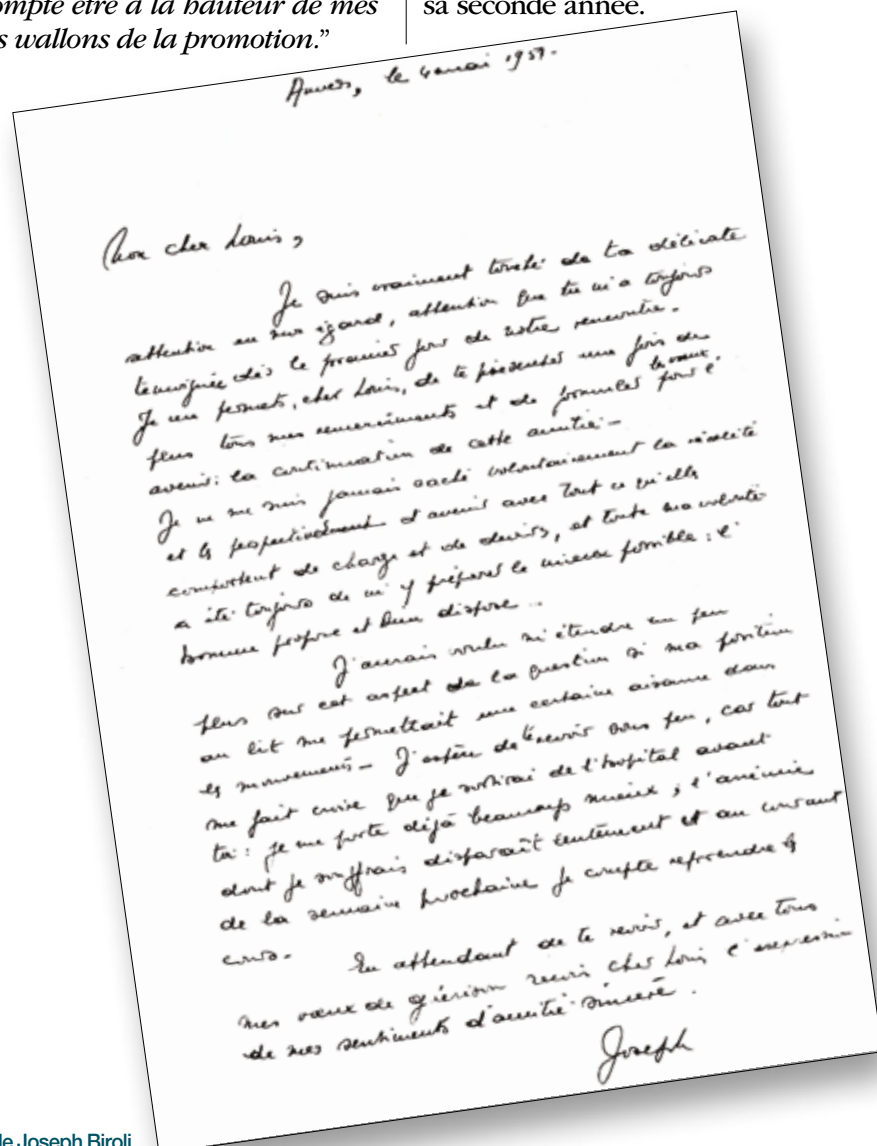 ompte être à la hauteur de mes
s wallons de la promotion.”
sa seconde année.
Anvers, le 4 mai 1957.
Mon cher Louis,
Je suis vraiment touché de ta délicate
attention à mon égard, attention que tu m'a toujours
témoignée dès le premier jour de notre rencontre.
Je me permets, cher Louis, de te présenter une fois de
plus tous mes remerciements et de formuler les vœux pour l'
avenir : la continuation de cette amitié –
Je ne me suis jamais caché volontairement la réalité
et les d'avenir avec tout ce qu'elles
comportent de charge et de devoirs, et toute ma volonté
a été toujours de m'y préparer le mieux possible : l'
homme propose et Dieu dispose ..
J'aurais voulu m'étendre un peu
plus sur cet aspect de la question si ma position
au lit me permettait une certaine aisance dans
les mouvements – J'espère de te revoir sous peu, car tout
me fait croire que je sortirai de l'hôpital avant
toi : je me porte déjà beaucoup mieux ; l'anémie
dont je souffrais disparaît lentement et au courant
de la semaine prochaine je compte reprendre les
cours.
En attendant de te revoir, et avec tous
mes vœux de guérison reçois cher Louis l'expression
de mes sentiments d'amitié sincère.
Joseph
de Joseph Biroli